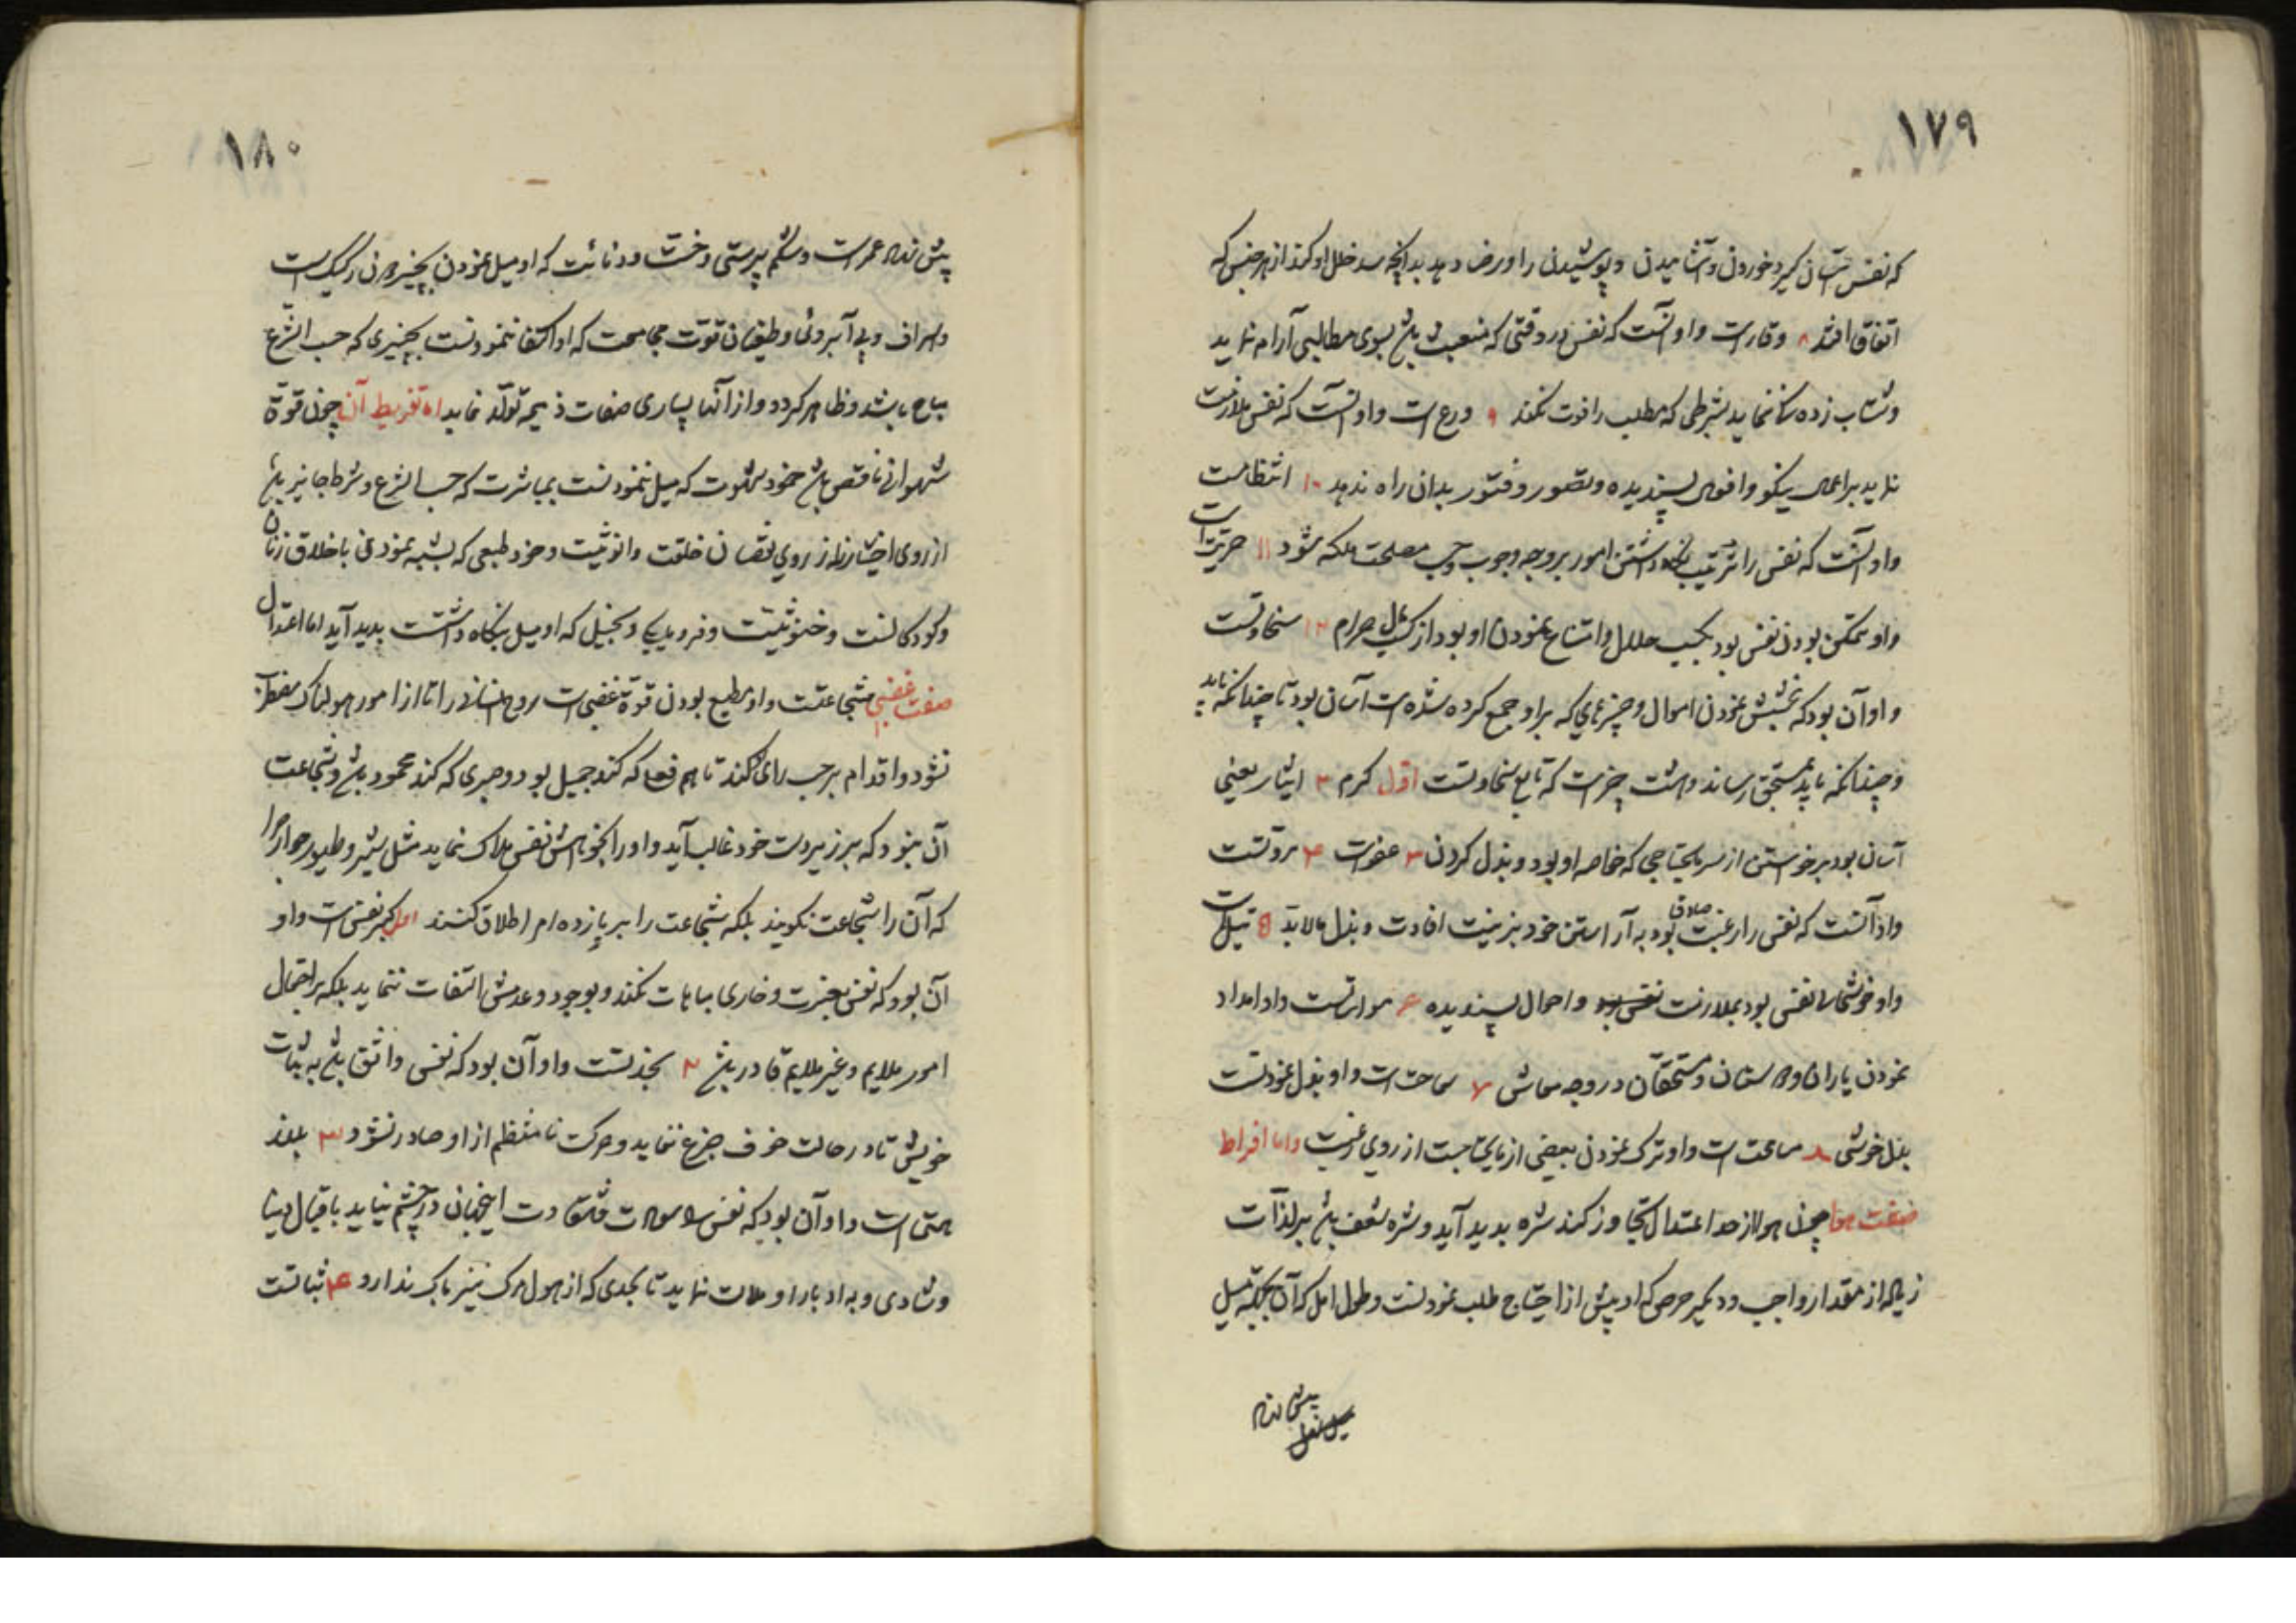 ١٧٩
که نفس آسان گیرد خوردن و آشامیدن و پوشیدن را و رضا دهد بدانچه سد خلل او کند از هر جنس که
اتفاق افتد ٨ وقارست و او آنست که نفس در وقتی که منبعث باشد بسوی مطالبی آرام نماید
و شتاب زده نماید بشرطی که مطلب را فوت نکند ٩ ورع است و او آنست که نفس ملازمت
نماید بر اعمال نیکو و افعال پسندیده و قصور و فتور بدان راه ندهد ١٠ انتظامست
و او آنست که نفس را ترتیب نگاه داشتن امور بر وجه وجوب و حسب مصلحت ملکه شود ١١ حریت است
و او متمکن بودن نفس بود بکسب حلال و امتناع نمودن او بود از کسب حرام ١٢ سخاوتست
و او آن بود که بخشش نمودن اموال و چیزهایی که بر او جمع کرده شده است آسان بود تا چندانکه باید
و چندانکه باید بمستحق رساند و هشت چیزست که تابع سخاوتست اول کرم ٢ ایثار یعنی
آسان بود برخواستن از سر مایحتاجی که خاصه او بود و بذل کردن ٣ عفوست ٤ مروتست
و او آنست که نفس را رغبت صادق بود به آراستن خود بزینت افادت و بذل مالابد ٥ نیل است
و او خوشحالی نفس بود بملازمت نفس و احوال پسندیده ۶ مواساتست و او امداد
نمودن یاران و دوستان و مستحقان در وجه معاش ٧ سماحت است و او بذل نمودنست
بدل خوشی ٨ مسامحت است و او ترک نمودن بعضی از مایحتاجست از روی رغبت و اما افراط
صفت هوا چون هوا از حد اعتدال تجاوز کند شره بدید آید و شره شعف باشد بر لذات
زیاده از مقدار واجب و دیگر حرص که او پیش از احتیاج طلب نمودنست و طول امل که آن
پیش از
١٨٠
پیش از عمرست و شکم پرستی و خست و دنائت که او میل نمودن بچیزهای رکیک است
و اسراف و بی آبروئی و طغیان قوت مجامعت که او اکتفا ننمودنست بچیزی که حسب الشرع
مباح باشد و ظاهر گردد و از آنها بسیاری صفات ذمیمه تولد نماید اما تفریط آن چون قوة
شهوانی ناقص باشد خمود شهوت که میل ننمودنست بمباشرت که حسب الشرع و شرط جایز باشد
از روی اختیار نه از روی نقصان خلقت و انوثیت و خود طبعی که شبیه نمودن باخلاق زنان
و کودکانست و خنوثیت و فرومایگی و بخیلی که او میل بنگاه داشتست بدید آید اما اعتدال
صفت غضبی شجاعتست و او مطیع بودن قوة غضبی است روح انسانی را تا از امور هولناک مضطرب
نشود و اقدام بر حسب رای کند تا هم فعلی که کند جمیل بود و صبری که کند محمود باشد و شجاعت
آن نبود که بر زیردست خود غالب آید و او را بخواهش نفس هلاک نماید مثل شیر و طیور جوارح
که آن را شجاعت نگویند بلکه شجاعت را بر یازده امر اطلاق کنند اول کبر نفس است و او
آن بود که نفس بعزت و خاری مباهات نکند و بوجود و عدمش التفات ننماید بلکه بر احتمال
امور ملایم و غیر ملایم قادر باشد ٢ نجدتست و او آن بود که نفس واثق باشد به ثبات
خویش تا در حالت خوف جزع ننماید و حرکت نامنتظم از او صادر نشود ٣ بلند
همتی است و او آن بود که نفس را سعادت و شقاوت اینجهانی در چشم نیاید باقبال دنیا
و شادی و به ادبار او ملالت ننماید تا بحدی که از هول مرگ نیز باک ندارد ٤ ثباتست